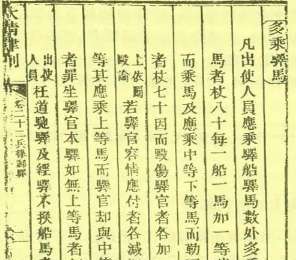 多乘驛馬
凡出使人員應乘驛船驛馬數外多乘
馬者杖八十每一船一馬加一等
而乘馬及應乘中等下等馬而勒
者杖七十因而毆傷驛官者各加
毆論
若驛官容情應付者各減
等其應乘上等馬而驛官却與中
者罪坐驛官本驛如無上等馬者
出使人員枉道馳驛及經驛不換船馬
大清律例
卷二十二兵律郵驛